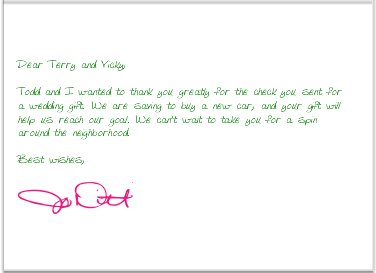 Dear Terry and Vicky,
Todd and I wanted to thank you greatly for the check you sent for
a wedding gift. We are saving to buy a new car, and your gift will
help us reach our goal. We can't wait to take you for a spin
around the neighborhood.
Best wishes,